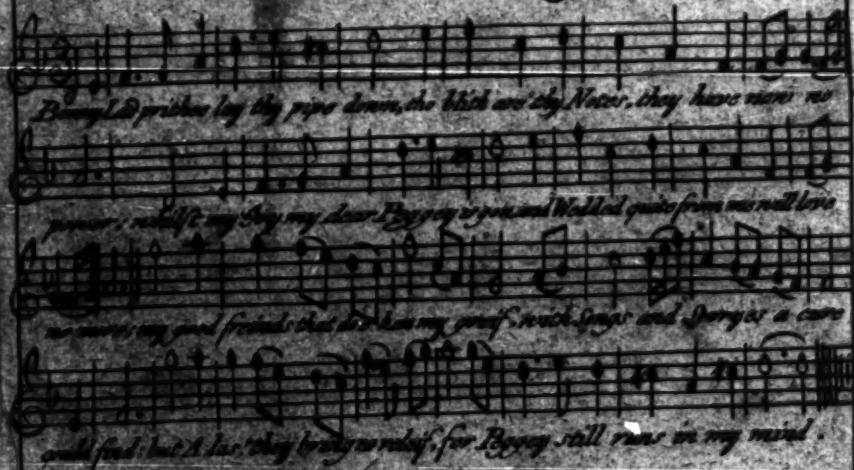 Bonny Lad prithee lay thy pipe down, tho blith are thy Notes, they have now no
power, whilst my Joy my dear Peggey is gon, and Wedded quite from me will love
no more, my good freinds that do know my greif, with Songs and Storyes a cure
would find: but Alas! they bring no releif, for Peggey still runs in my mind.